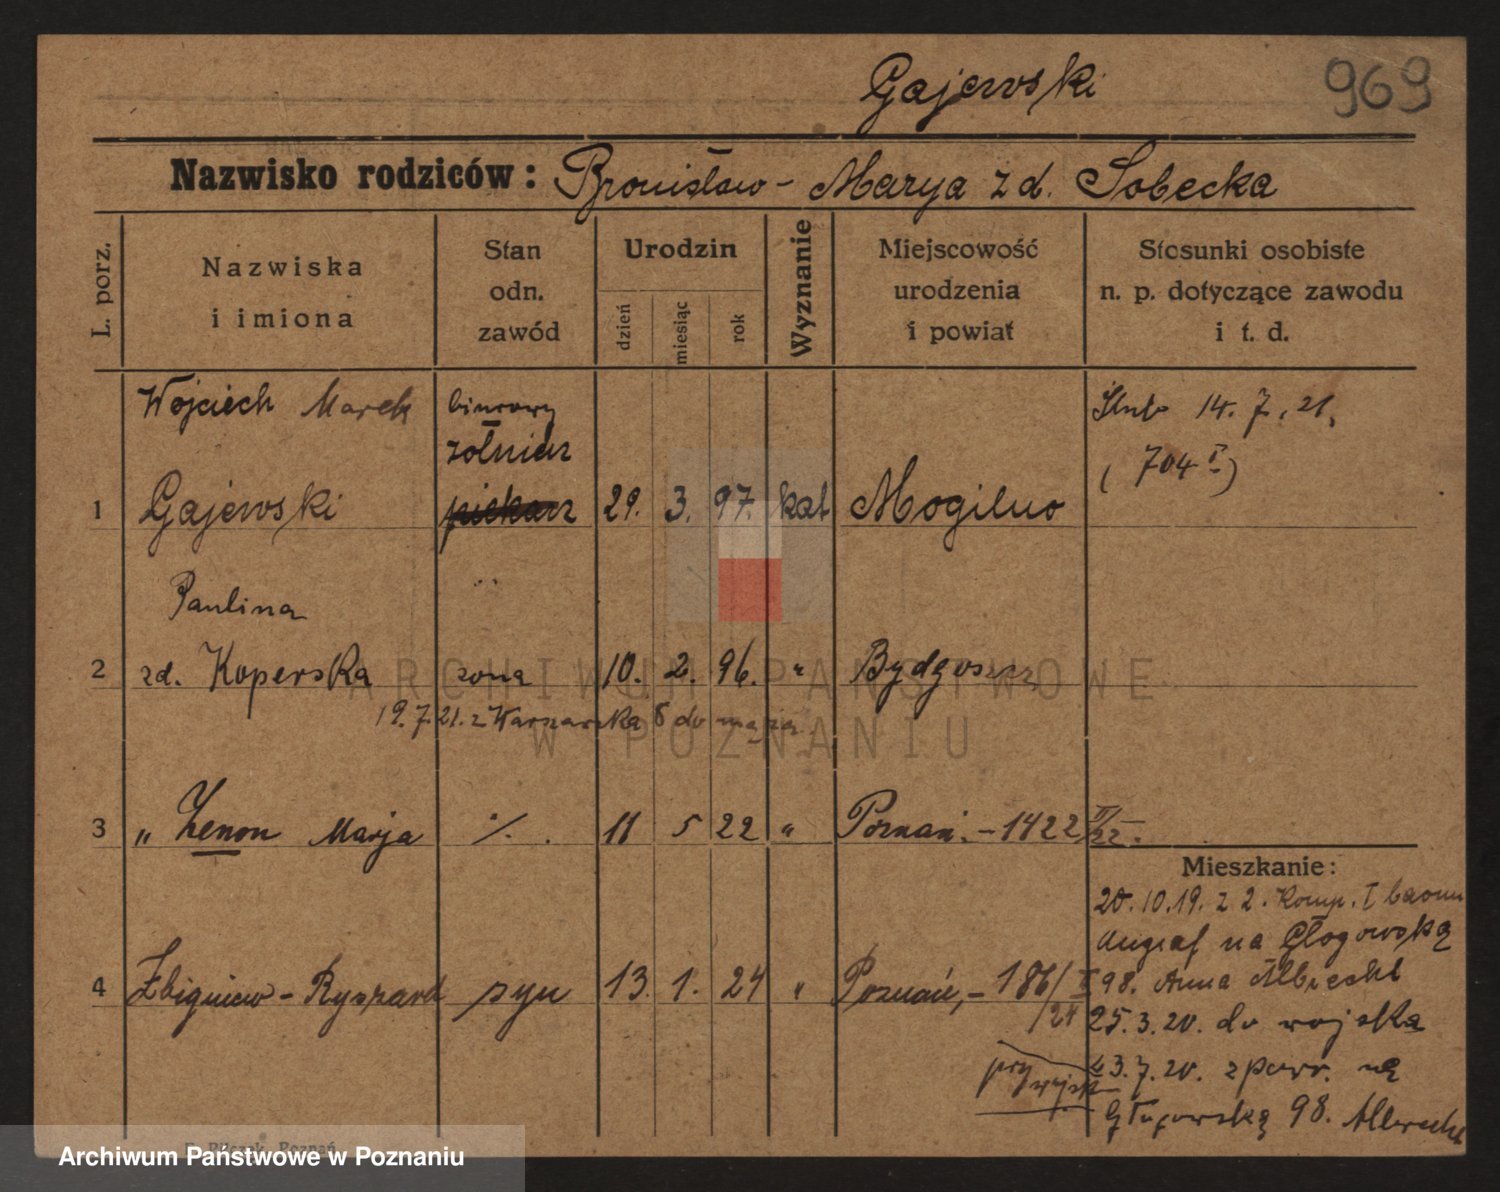 Gajewski 969
Nazwisko rodziców: Bronisław - Marya zd. Sobecka
L. porz.
Nazwiska i imiona
Stan odn. zawód
Urodzin
dzień miesiąc rok
Wyznanie
Miejscowość urodzenia i powiat
Stosunki osobiste n. p. dotyczące zawodu i t. d.
Wojciech Marek biurowy Ślub 14. 7. 21.
żołnierz (704 I)
1 Gajewski piekarz 29. 3. 97. kat Mogilno
Paulina
2 zd. Koperska żona 10. 2. 96. " Bydgoszcz
19.7.21. z Warszawska 8 do męża
3 " Zenon Marja ·/. 11 5 22 " Poznań. - 1422 II/22.
Mieszkanie:
20.10.19. z 2. Komp. I baonu
na Głogowską
98. Anna Albrecht
4 Zbigniew - Ryszard syn 13. 1. 24 " Poznań, - 186/I
/24
25.3.20. do wojska
przy wojsk
23.7.20. z powr. na
Głogowską 98. Albrecht
F. Pilczek, Poznań
ARCHIWUM PAŃSTWOWE
W POZNANIU
Archiwum Państwowe w Poznaniu